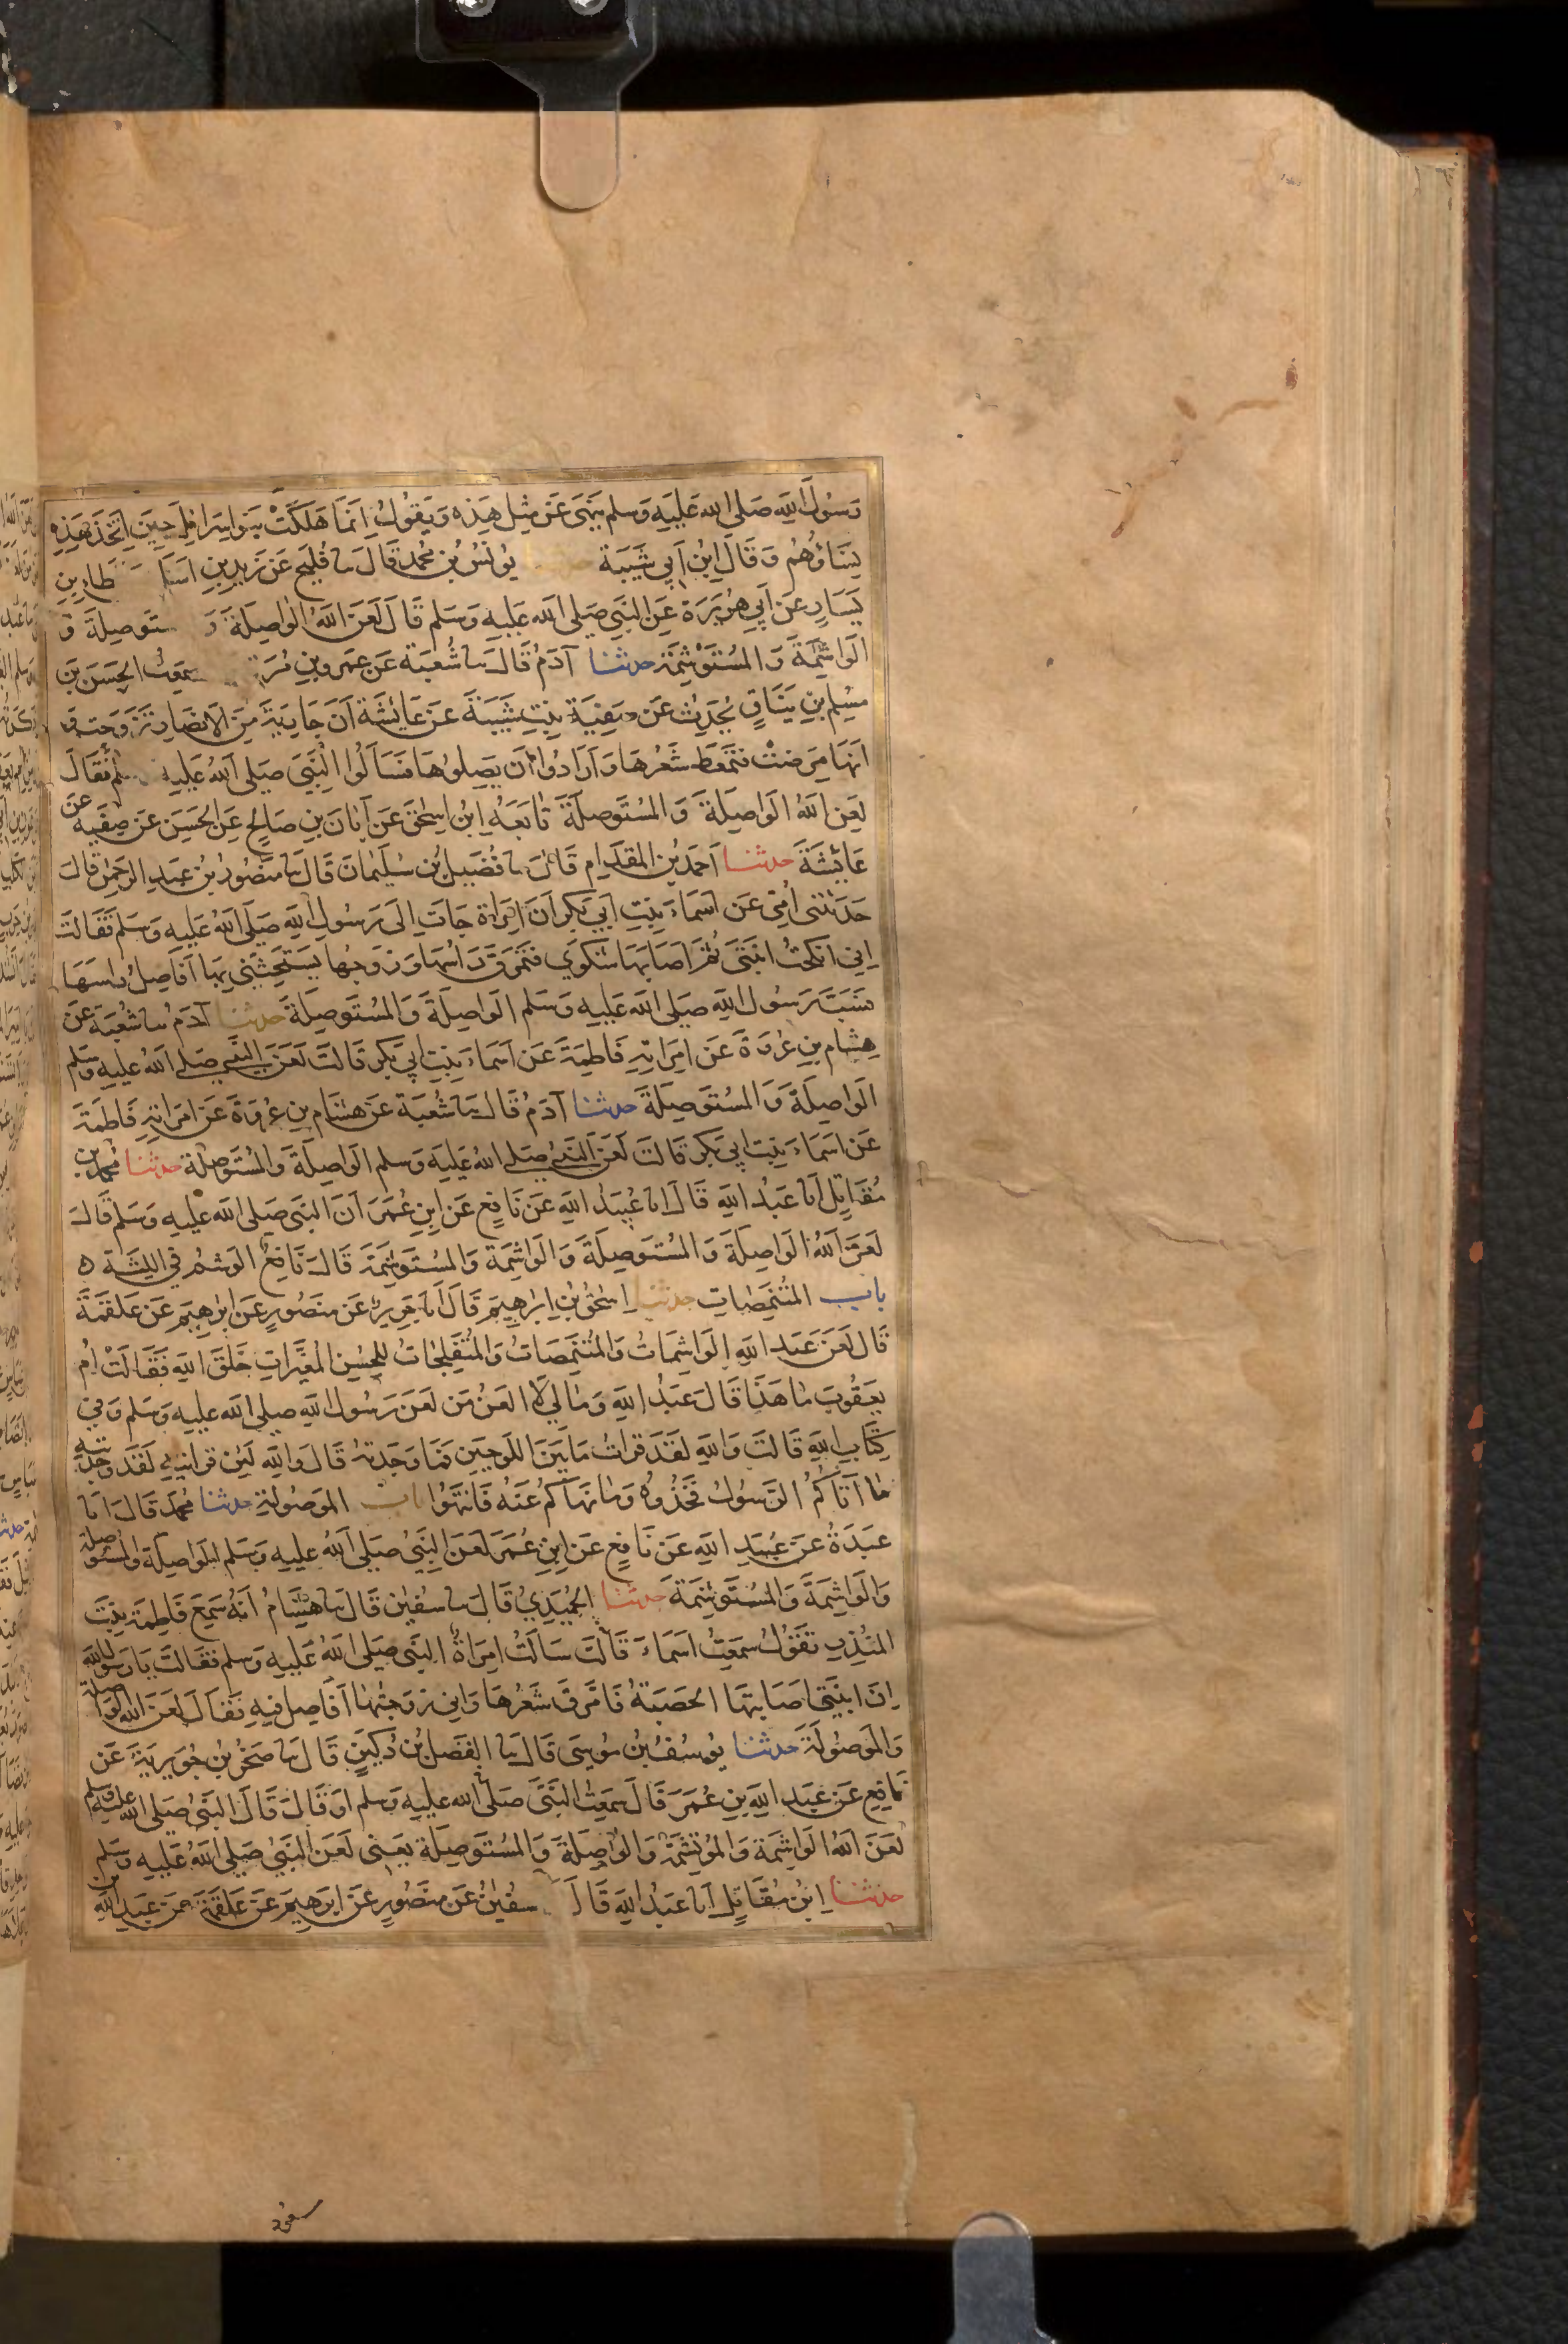 رَسُولَ اللَّهِ صَلى الله عَلَيْهِ وَسَلم يَنْهَى عَنْ مِثْلِ هَذِهِ وَيَقُولُ اِنَمَا هَلَكَتْ بَنوا اِسْرَائِل حِينَ اتَّخَذَ هَذِهِ
نِسَاؤهُم وَقَالَ ابْنُ اَبي شَيْبَةَ يُونُسُ بْن مُحَمد قَالَ سا فُلَيح عَن زَيْدِ بنِ اسَلَ طاءِ بنِ
يَسَارٍ عَن اَبِي هُرَيرَة عَنِ النَّبِي صَلى الله عَليهِ وَسَلم قَالَ لَعَنَ اللهُ الوَاصِلَةَ وَ ستَوصِلَةَ وَ
الوَاشِمَةَ وَالمُسْتَوشِمَة حدثنا آدَمُ قَالَ سا شُعبَة عَن عَمرِو بنِ مُرَة سَمِعتُ الحَسَنَ بنَ
مُسْلِم بنِ يَنَّاقٍ يُحَدِثُ عَن صَفِيَةَ بِنتِ شَيبَةَ عَن عَائِشَة اَنَ جَارِيَةً مِنَ الانصَارِ تَزَوَجَت وَ
اَنَها مَرِضَتْ فتمَعَطَ شَعْرُهَا وَاَرَادُوا اَن يَصِلُوهَا فَسَاَلُوا النَّبِيَ صَلى اللهُ عَليهِ سلم فَقَالَ
لَعَنَ اللهُ الوَاصِلَةَ وَالمُسْتَوصِلَةَ تابَعَهُ ابن اسحٰقَ عَن اَبَانَ بنِ صَالِحٍ عَنِ الحَسَنِ عَن صَفِيَةَ عَن
عَائِشَةَ حدثنا اَحمَد بن المِقدَامِ قَالَ سا فُضَيلُ بن سُلَيمَانَ قَالَ سا مَنصُور بن عَبدِ الرَحمٰن قَالَ
حَدَثَتنى اُمِّى عَن اَسمَاءَ بِنتِ اَبِي بَكرٍ اَنَ امرَاة جَات اِلَى رَسُولِ اللهِ صَلى اللهُ عَليهِ وَسَلم فَقَالَت
اِنِي انكَحتُ ابنَتِى ثُمَ اَصَابَها شَكوَي فتمَرَقَ رَاسُها وَزَوجُها يَستَحِثُنِي بِها اَفَاصِلُ رَاسَهَا
فَسَبَّ رَسُولُ اللهِ صَلى اللهُ عَليهِ وَسَلم الوَاصِلَةَ وَالمُستَوصِلَةَ حدثنا آدَمُ سا شُعبَة عَن
هِشام بنِ عُروَةَ عَن امرَاتِهِ فَاطِمَةَ عَن اَسمَاءَ بِنتِ اَبِي بَكر قَالَت لَعَنَ النَّبِي صَلى اللهُ عليهِ وسَلم
الوَاصِلَةَ وَالمُستَوصِلَةَ حدثنا آدَمُ قَالَ سا شُعبَة عَن هِشَام بنِ عُروَةَ عَن امرَاتِهِ فَاطِمَةَ
عَن اَسمَاءَ بِنتِ اَبِي بَكر قَالَت لَعَنَ النَّبِيُ صَلى اللهُ عَليهِ وَسَلم الوَاصِلَةَ وَالمُستَوصِلَة حدثنا مُحمد بن
مُقَاتِل اَنا عَبدُ اللهِ قَالَ انا عُبَيدُ اللهِ عَن نَافِعٍ عَن ابنِ عُمَرَ اَنَ النَّبِي صَلى الله عليهِ وَسَلم قَالَ
لَعَنَ اللهُ الوَاصِلَةَ وَالمُستَوصِلَةَ وَالوَاشِمَةَ وَالمُستَوشِمَةَ قَالَ نَافِعُ الوَشمُ فِي اللِثَةِ ه
باب المُتَنَمِّصَاتِ حدثنا اِسحٰق بن اِبرَاهِيمَ قَالَ اَنا جَرِيرُ عَن مَنصُورٍ عَن ابرٰهِيمَ عَن عَلقَمَةَ
قَالَ لَعَنَ عَبد اللهِ الوَاشِمَاتُ وَالمُتَنَمِصَاتُ وَالمُتَفَلِجَاتُ لِلحُسنِ المُغَيِّراتِ خَلقَ اللهِ فَقَالَتْ اُم
يَعقُوبَ مَا هَذَا قَالَ عَبدُ اللهِ وَمَا لِي لَا العَنُ مَن لَعَنَ رَسُولُ اللهِ صلى الله عليهِ وَسَلم وَفي
كِتَابِ اللهِ قَالَت وَاللهِ لَقَدَ قَراتُ مَا بَينَ اللَوحَينِ فَمَا وَجَدتهُ قَالَ وَاللهِ لَئِن قراتِيهِ لَقَد وَجَدتِيهِ
مَا آتَاكُمُ الرَسُولُ فَخُذُوهُ وَمَا نَهَاكُم عَنهُ فَانتَهُوا باب المَوصُولَةِ حدثنا مُحَمد قَالَ انا
عَبدَةُ عَن عُبَيدِ اللهِ عَن نَافِعٍ عَن ابنِ عُمَرَ لَعَنَ النَّبِيُ صَلى اللهُ عليهِ وَسَلم الوَاصِلَةَ وَالمُستَوصِلَة
وَالوَاشِمَةَ وَالمُستَوشِمَةَ حدثنا الحُمَيدِيُ قَالَ سا سُفيٰن قَالَ سا هِشَامُ اَنَهُ سَمِعَ فَاطِمَة بِنتَ
المُنذِرِ تَقولُ سَمِعتُ اَسمَاءَ قَالَت سَالَتُ امرَاةُ النَّبِي صَلى اللهُ عَليهِ وَسَلم فَقَالَت يَا رَسُولَ اللهِ
اِنَ ابنَتِى اصَابَتهَا الحَصبَةُ فَامَّرقَ شَعرُهَا وَاني زَوجتُهَا اَفَاصِل فِيهِ فَقَالَ لَعَنَ اللهُ الوَاصِلَة
وَالمَوصُولَةَ حدثنا يُوسُفُ بن مُوسَى قَالَ سا الفَضلُ بن دُكَينٍ قَالَ سا صَخرُ بن جُوَيرِيَةَ عَن
نَافِعٍ عَن عَبدِ اللهِ بنِ عُمَرَ قَالَ سَمِعتُ النَّبِيَ صَلى الله عليهِ وَسَلم اوَ قَالَ قَالَ النَّبِيُ صَلى الله عليه وسلم
لَعَنَ اللهُ الوَاشِمَة وَالمُوتَشِمَة وَالوَاصِلَةَ وَالمُستَوصِلَة يَعنى لَعَنَ النَّبِيُ صَلى اللهُ عَليهِ وسَلم
حدثنا ابنُ مُقَاتِلٍ اَنا عَبدُ اللهِ قَالَ سُفيٰنُ عَن مَنصُورٍ عَن ابرٰهِيمَ عَن عَلقَمَةَ عَن عَبدِ اللهِ بن
مسعود